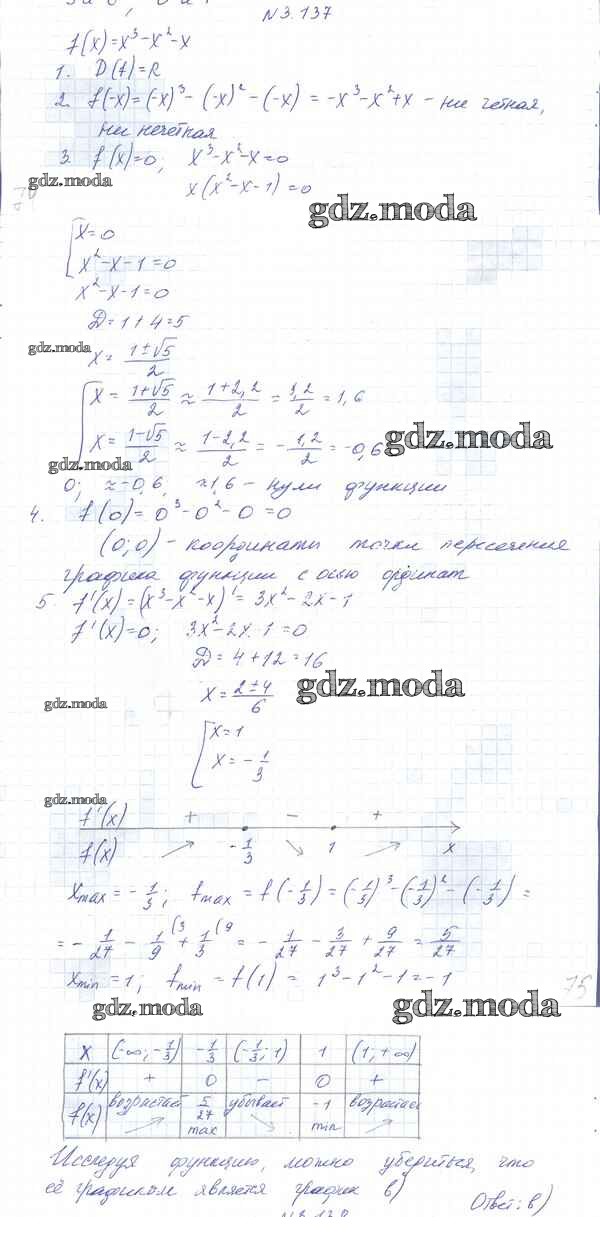 N 3.137
f(x)=x³-x²-x
1. D(f)=R
2. f(-x)=(-x)³-(-x)²-(-x)=-x³-x²+x - ни четная,
ни нечетная
3. f(x)=0; x³-x²-x=0
gdz.moda
x(x²-x-1)=0
gdz.moda
x=0
x²-x-1=0
x²-x-1=0
D=1+4=5
gdz.moda
x= (1±√5)/2
x= (1+√5)/2 ≈ (1+2,2)/2 = 3,2/2 = 1,6
x= (1-√5)/2 ≈ (1-2,2)/2 = -1,2/2 = -0,6
gdz.moda
gdz.moda
0; ≈-0,6, ≈1,6 - нули функции
4. f(0)=0³-0²-0=0
(0;0) - координаты точки пересечения
графика функции с осью ординат
5. f'(x)=(x³-x²-x)'=3x²-2x-1
f'(x)=0; 3x²-2x-1=0
D=4+12=16
gdz.moda
gdz.moda
x= (2±4)/6
x=1
x=-1/3
gdz.moda
f'(x) + - +
f(x) -1/3 1 x
xmax=-1/3; fmax=f(-1/3)=(-1/3)³-(-1/3)²-(-1/3)=
=-1/27-1/9(3+1/3(9=-1/27-3/27+9/27=5/27
xmin=1; fmin=f(1)=1³-1²-1=-1
75
gdz.moda
gdz.moda
x (-∞;-1/3) -1/3 (-1/3;1) 1 (1;+∞)
f'(x) + 0 - 0 +
f(x) возрастает 5/27 max убывает -1 min возрастает
Исследуя функцию, можно убериться, что
её графиком является график в)
Ответ: в)